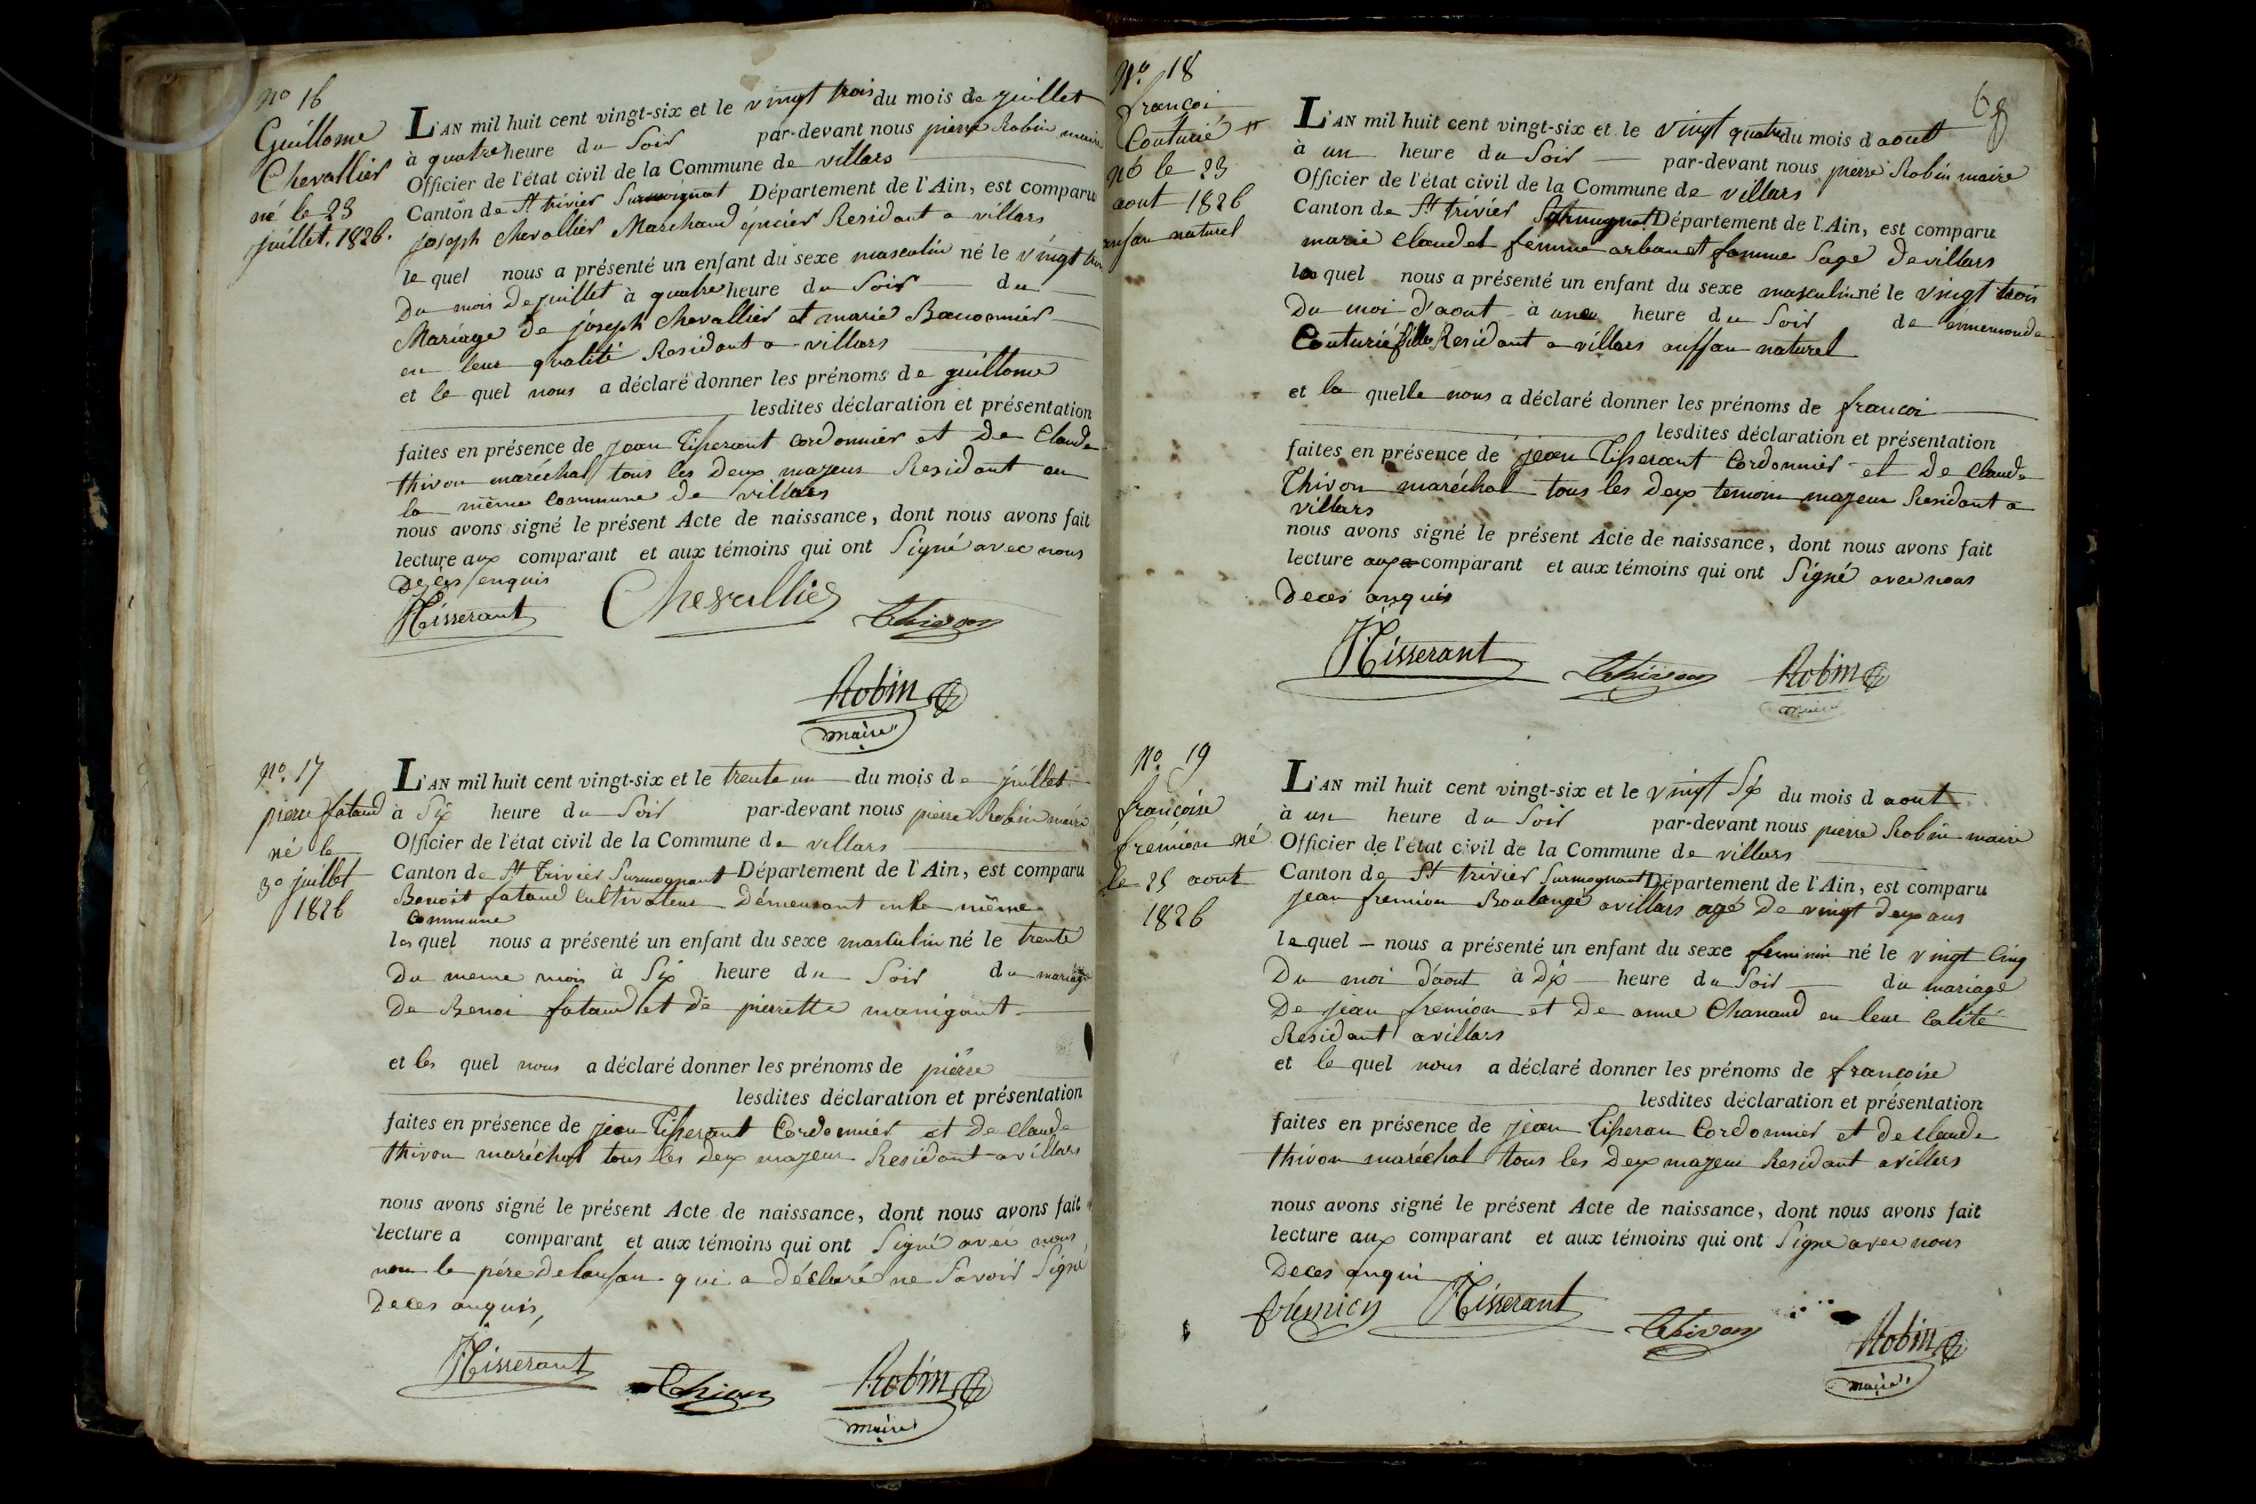 No 16
Guillome
Chevallier
né le 23
juillet. 1826.
L'AN mil huit cent vingt-six et le vingt trois du mois de juillet
à quatre heure du Soir par-devant nous pierre Robin maire
Officier de l'état civil de la Commune de villars
Canton de St trivier Surmoignat Département de l'Ain, est comparu
joseph chevallier Marchand épicier Residant a villars
le quel nous a présenté un enfant du sexe masculin né le vingt trois
Du mois De juillet à quatre heure du Soir du
Mariage de joseph chevallier et marie Bauonnier
en leur qualité Residant a villars
et le quel nous a déclaré donner les prénoms de guillome
lesdites déclaration et présentation
faites en présence de jean Tisserant cordonnier et De Claude
thivon maréchal tous les Deux majeur Residant en
la même commune De villars
nous avons signé le présent Acte de naissance, dont nous avons fait
lecture aux comparant et aux témoins qui ont Signé avec nous
De ces enquis
Tisserant Chevallier Thivon
Robin
maire
No. 17
pierre fataud
né le
30 juillet
1826
L'AN mil huit cent vingt-six et le trente un du mois de juillet
à Six heure du Soir par-devant nous pierre Robin maire
Officier de l'état civil de la Commune de villars
Canton de St Trivier Surmognant Département de l'Ain, est comparu
Benoit fataud Cultivateur Démeurant en la même
Commune
les quel nous a présenté un enfant du sexe masculin né le trente
Du meme mois à Six heure du Soir du mariage
De Benoi fataud et de pierrette manigant
et les quel nous a déclaré donner les prénoms de pierre
lesdites déclaration et présentation
faites en présence de jean Tisserant Cordonnier et De Claude
thivon maréchal tous les Deux majeur Residant a villars
nous avons signé le présent Acte de naissance, dont nous avons fait
lecture a comparant et aux témoins qui ont Signé avec nous
non le père De lanfan qui a déclaré ne Savoir Signé
De ces anquis,
Tisserant Thivon Robin
maire
68
No. 18
françoi
Couturié
né le 23
aout 1826
enfan naturel
L'AN mil huit cent vingt-six et le vingt quatre du mois d aout
à un heure du Soir par-devant nous pierre Robin maire
Officier de l'état civil de la Commune de villars
Canton de St trivier Surmognat Département de l'Ain, est comparu
marie Claudet femme arbanet famme Sage De villars
la quel nous a présenté un enfant du sexe masculin né le vingt trois
Du moi D'aout à une heure du Soir de émemonde
Couturié fille Residant a villars anffan naturel
et la quelle nous a déclaré donner les prénoms de francoi
lesdites déclaration et présentation
faites en présence de jean Tisserant Cordonnier et De claude
Thivon maréchal tous les Deux temoin majeur Residant a
villars
nous avons signé le présent Acte de naissance, dont nous avons fait
lecture aux comparant et aux témoins qui ont Signé avec nous
De ces anquis
Tisserant Thivon Robin
maire
No. 19
françoise
frémion né
le 25 aout
1826
L'AN mil huit cent vingt-six et le vingt Six du mois d aout
à un heure du Soir par-devant nous pierre Robin maire
Officier de l'état civil de la Commune de villars
Canton de St trivier Surmognant Département de l'Ain, est comparu
jean fremion Boulangé a villars agé De vingt deux ans
le quel nous a présenté un enfant du sexe feminin né le vingt Cinq
Du moi d'aout à Dix heure du Soir du mariage
De jean fremion et De anne Chanaud en leur Calité
Residant a villars
et le quel nous a déclaré donner les prénoms de francoise
lesdites déclaration et présentation
faites en présence de jean Tisseran Cordonnier et de Claude
thivon maréchal tous les Deux majeur Residant a villars
nous avons signé le présent Acte de naissance, dont nous avons fait
lecture aux comparant et aux témoins qui ont Signe avec nous
De ces anqui
frémion Tisserant Thivon Robin
maire